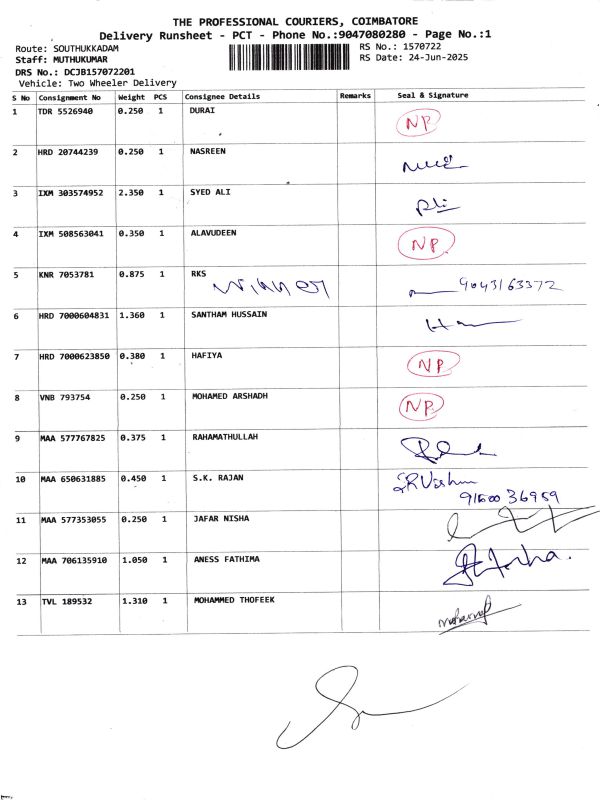 THE PROFESSIONAL COURIERS, COIMBATORE
Delivery Runsheet - PCT - Phone No.:9047080280 - Page No.:1
Route: SOUTHUKKADAM RS No.: 1570722
Staff: MUTHUKUMAR RS Date: 24-Jun-2025
DRS No.: DCJB157072201
Vehicle: Two Wheeler Delivery
S No Consignment No Weight PCS Consignee Details Remarks Seal & Signature
1 TDR 5526940 0.250 1 DURAI NP
2 HRD 20744239 0.250 1 NASREEN
3 IXM 303574952 2.350 1 SYED ALI
4 IXM 508563041 0.350 1 ALAVUDEEN NP
5 KNR 7053781 0.875 1 RKS 9043163372
6 HRD 7000604831 1.360 1 SANTHAM HUSSAIN
7 HRD 7000623850 0.380 1 HAFIYA NP
8 VNB 793754 0.250 1 MOHAMED ARSHADH NP
9 MAA 577767825 0.375 1 RAHAMATHULLAH
10 MAA 650631885 0.450 1 S.K. RAJAN
11 MAA 577353055 0.250 1 JAFAR NISHA
12 MAA 706135910 1.050 1 ANESS FATHIMA
13 TVL 189532 1.310 1 MOHAMMED THOFEEK